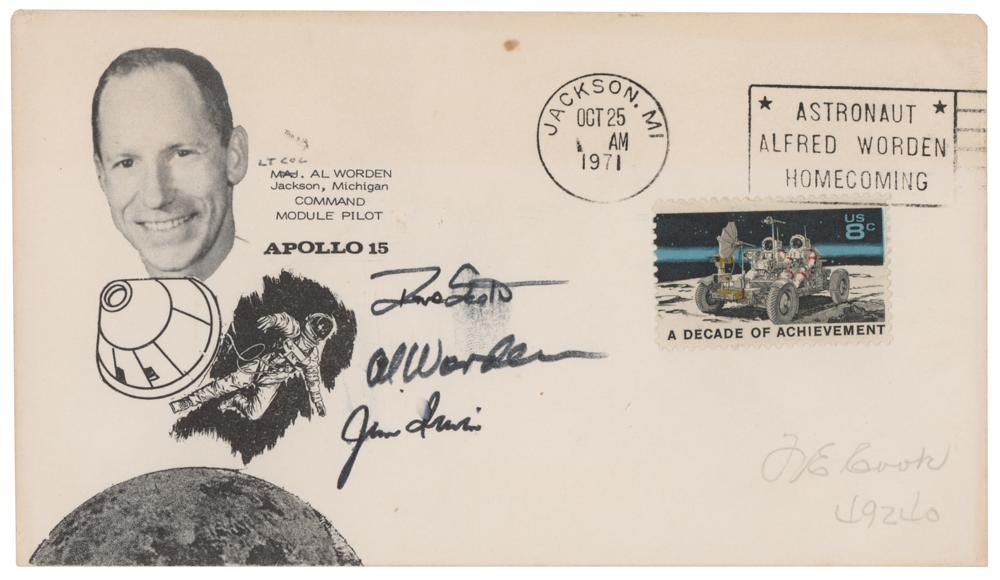 LT COL
MAJ. AL WORDEN
Jackson, Michigan
COMMAND
MODULE PILOT
APOLLO 15
JACKSON, MI
OCT 25
AM
1971
★ ASTRONAUT ★
ALFRED WORDEN
HOMECOMING
US
8c
A DECADE OF ACHIEVEMENT
Dave Scott
Al Worden
Jim Irwin
Cook
49240